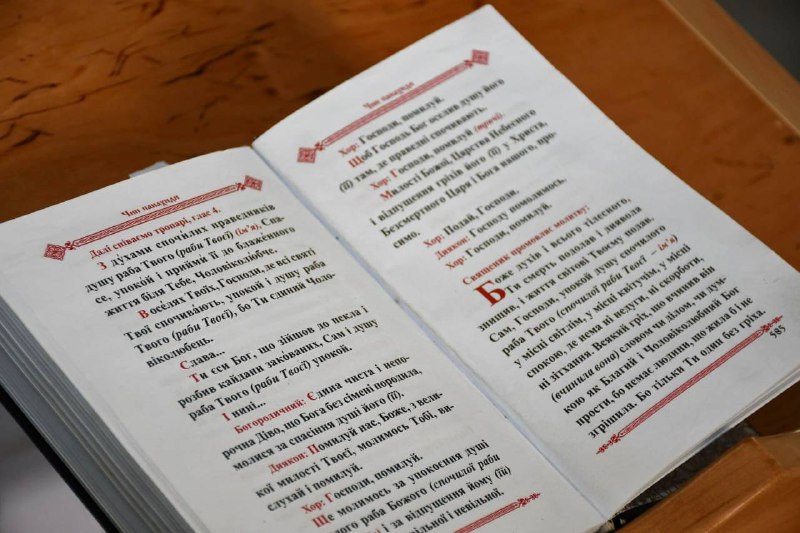 Чин панахиди
Далі співаємо тропарі, глас 4.
З ду́хами спочилих праведників
душу раба Твого (раби Твоєї) (ім'я), Спа-
се, упокой і прийми її до блаженного
життя біля Тебе, Чоловіколюбче.
В осе́лях Твоїх, Господи, де всі святі
Твої спочивають, упокой і душу раба
Твого (раби Твоєї), бо Ти єдиний Чоло-
віколюбець.
Слава...
Ти єси Бог, що зійшов до пекла і
розбив кайдани закованих, Сам і душу
раба Твого (раби Твоєї) упокой.
І нині...
Богородичний: Єдина чиста і непо-
рочна Діво, що Бога без сімені породила,
молися за спасіння душі його (її).
Диякон: Помилуй нас, Боже, з вели-
кої милості Твоєї, молимось Тобі, ви-
слухай і помилуй.
Хор: Господи, помилуй.
Ще молимось за упокоєння душі
лого раба Божого (спочилої раби
і за відпущення йому (їй)
вільної і невільної.
Чин панахиди
Хор: Господи, помилуй.
Щоб Господь Бог оселив душу його
(її) там, де праведні спочивають.
Хор: Господи, помилуй (тричі).
Милости Божої, Царства Небесного
і відпущення гріхів його (її) у Христа,
Безсмертного Царя і Бога нашого, про-
симо.
Хор: Подай, Господи.
Диякон: Господу помолимось.
Хор: Господи, помилуй.
Священик промовляє молитву:
Боже духів і всього тілесного,
Ти смерть подолав і диявола
знищив, і життя світові Твоєму подав.
Сам, Господи, упокой душу спочилого
раба Твого (спочилої раби Твоєї – ім'я)
у місці світлім, у місці квітучім, у місці
спокою, де нема ні недуги, ні скорботи,
ні зітхання. Всякий гріх, що вчинив він
(вчинила вона) словом чи ділом, чи дум-
кою як Благий і Чоловіколюбний Бог
прости, бо немає людини, що жила б і не
згрішила. Бо тільки Ти один без гріха.
585